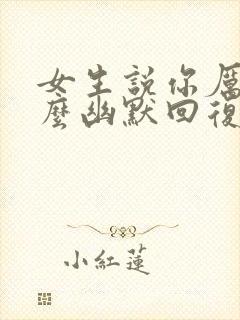 女生説你厲
麼幽默回復
小紅蓮